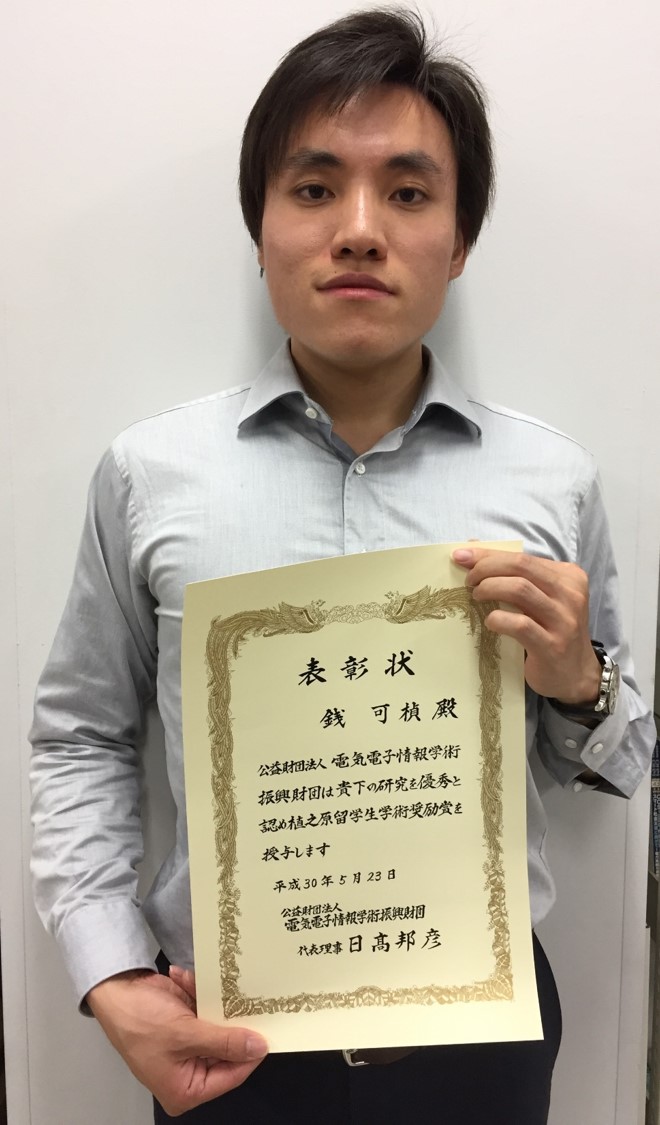 表彰状
銭 可楨 殿
公益財団法人 電気電子情報学術
振興財団は貴下の研究を優秀と
認め植之原留学生学術奨励賞を
授与します
平成30年5月23日
公益財団法人
電気電子情報学術振興財団
代表理事 日髙邦彦